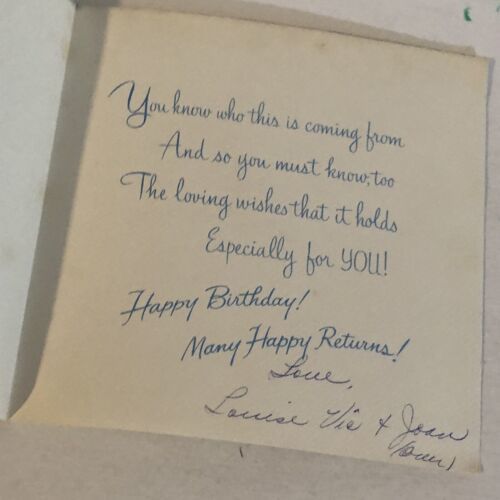 You know who this is coming from
And so you must know, too
The loving wishes that it holds
Especially for YOU!
Happy Birthday!
Many Happy Returns!
Love,
Louise Vic + Joan